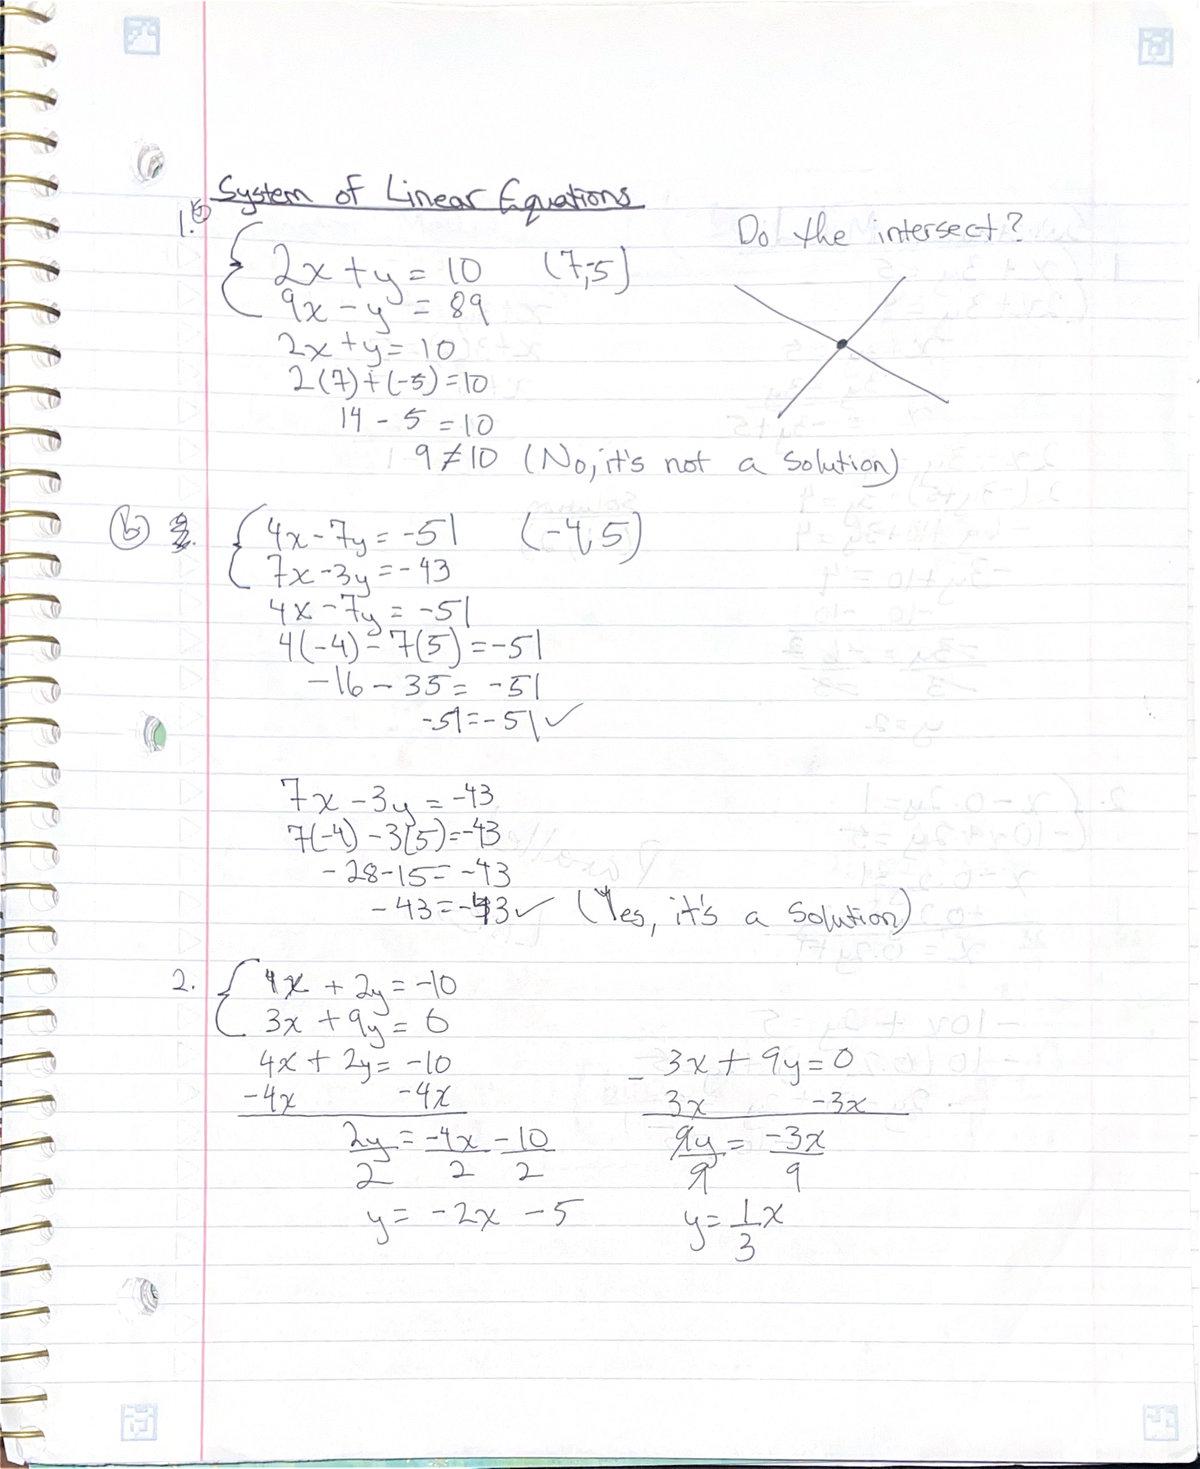 System of Linear Equations
1.
Do the intersect?
2x + y = 10 (7,-5)
9x - y = 89
2x + y = 10
2(7) + (-5) = 10
14 - 5 = 10
9 ≠ 10 (No, it's not a solution)
b
4x - 7y = -51 (-4, 5)
7x - 3y = -43
4x - 7y = -51
4(-4) - 7(5) = -51
-16 - 35 = -51
-51 = -51 ✓
7x - 3y = -43
7(-4) - 3(5) = -43
-28 - 15 = -43
-43 = -43 ✓ (Yes, it's a solution)
2. 4x + 2y = -10
3x + 9y = 0
4x + 2y = -10 3x + 9y = 0
-4x -4x - 3x -3x
2y/2 = -4x/2 - 10/2 9y/9 = -3x/9
y = -2x - 5 y = 1/3 x